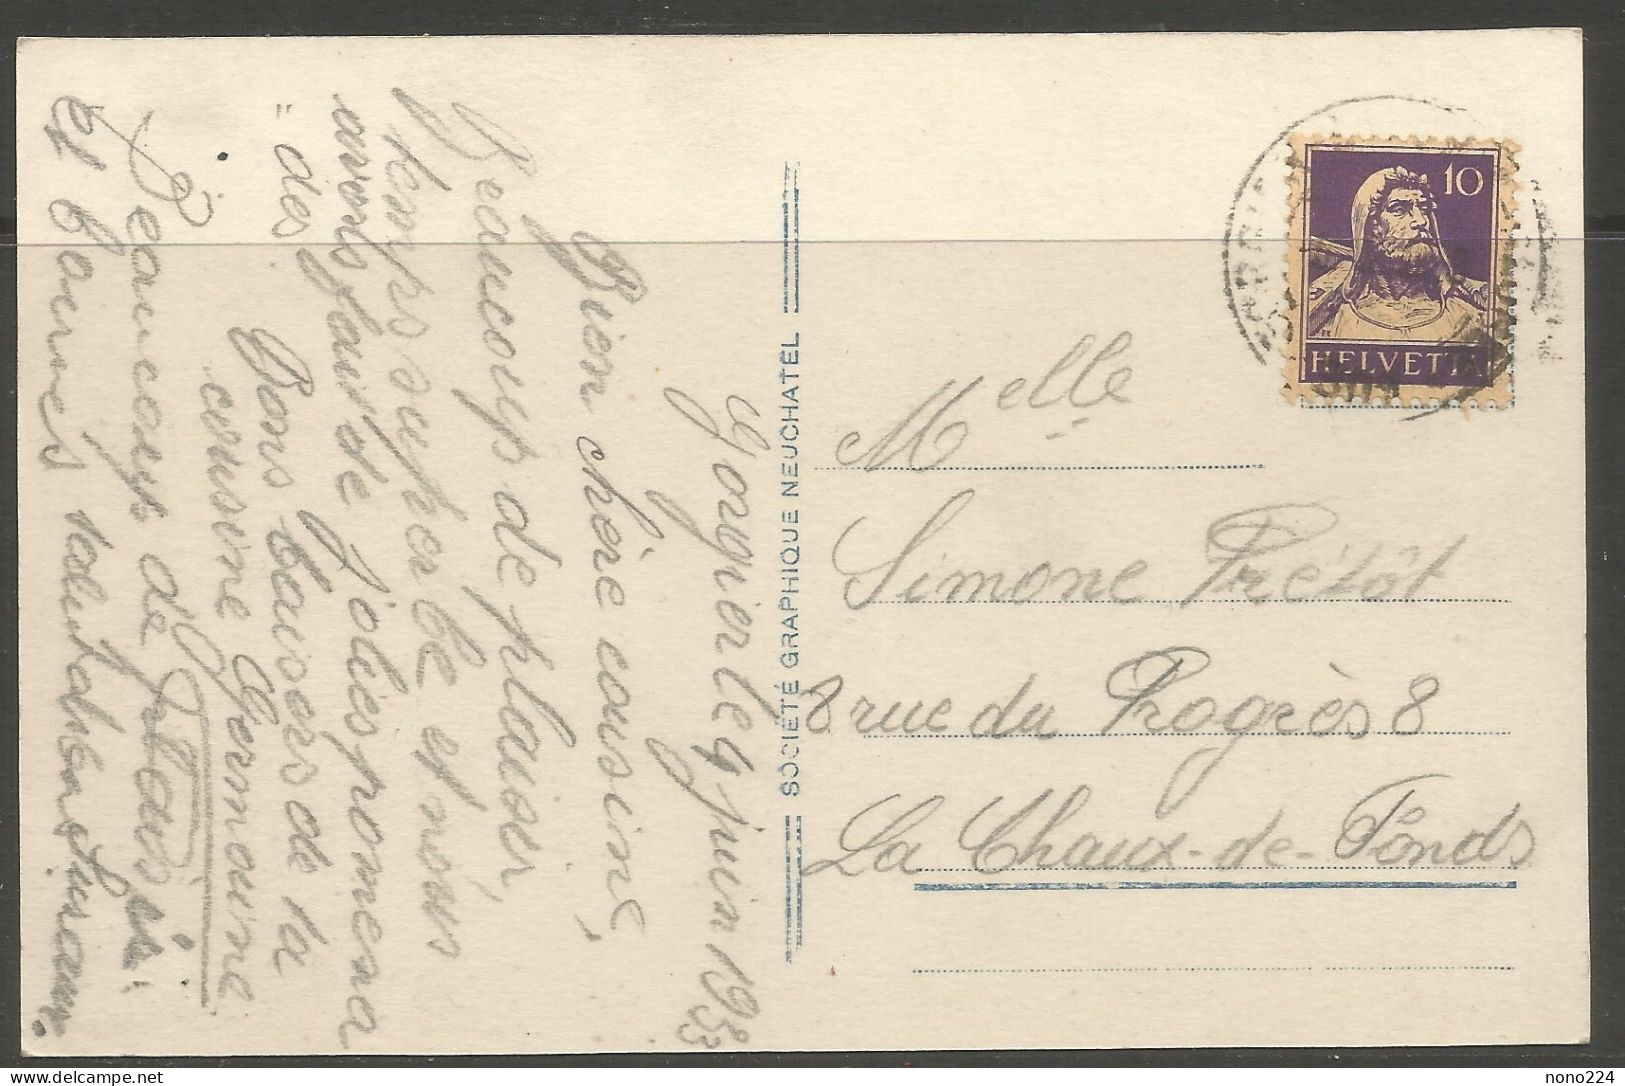 Gorgier le 9 juin 1933
Bien chère cousine,
Beaucoup de plaisir,
temps superbe et nous
avons fait de jolies promena
" des
Bons baisers de ta
cousine Germaine
Beaucoup de plaisir
et bonnes
SOCIÉTÉ GRAPHIQUE NEUCHATEL
10
HELVETIA
Melle
Simone Prétôt
8 rue du Progrès 8
La Chaux-de-Fonds
nono224